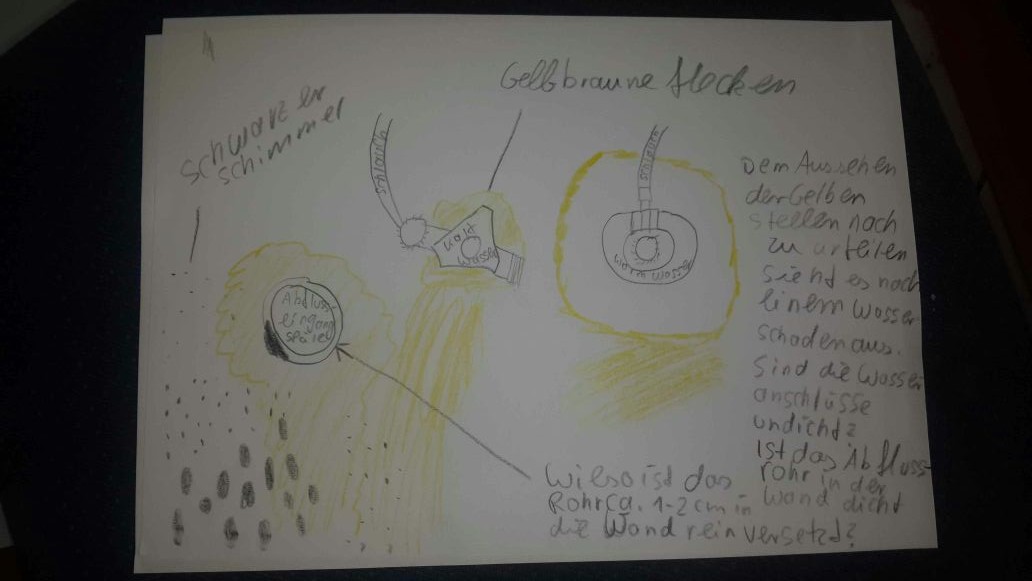 Gelbbraune flecken
schwarzer
schimmer
schlauch
schlauch
kalt
wasser
warm wasser
Abfluss
eingang
spüle
Dem Aussehen
der Gelben
stellen nach
zu urteilen
sieht es nach
einem wasser
schaden aus.
Sind die Wasser
anschlüsse
undicht?
Ist das Abfluss-
rohr in der
Wand dicht
Wieso ist das
Rohr ca. 1-2 cm in
die Wand rein versetzt?